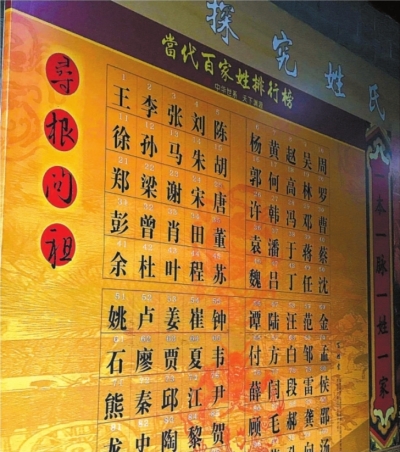 探究姓氏
當代百家姓排行榜
尋根问祖
王 李 张 刘 陈 杨 黄 赵 吴 周
徐 孙 马 朱 胡 郭 何 高 林 罗
郑 梁 谢 宋 唐 许 韩 冯 邓 曹
彭 曾 肖 田 董 袁 潘 于 蒋 蔡
余 杜 叶 程 苏 魏 吕 丁 任 沈
姚 卢 姜 崔 钟 谭 陆 汪 范 金
石 廖 贾 夏 韦 付 方 白 邹 孟
熊 秦 邱 江 尹 薛 闫 段 雷 侯
龙 史 陶 黎 贺 顾 毛 郝 龚 邵
汤
一本一脉一姓一家